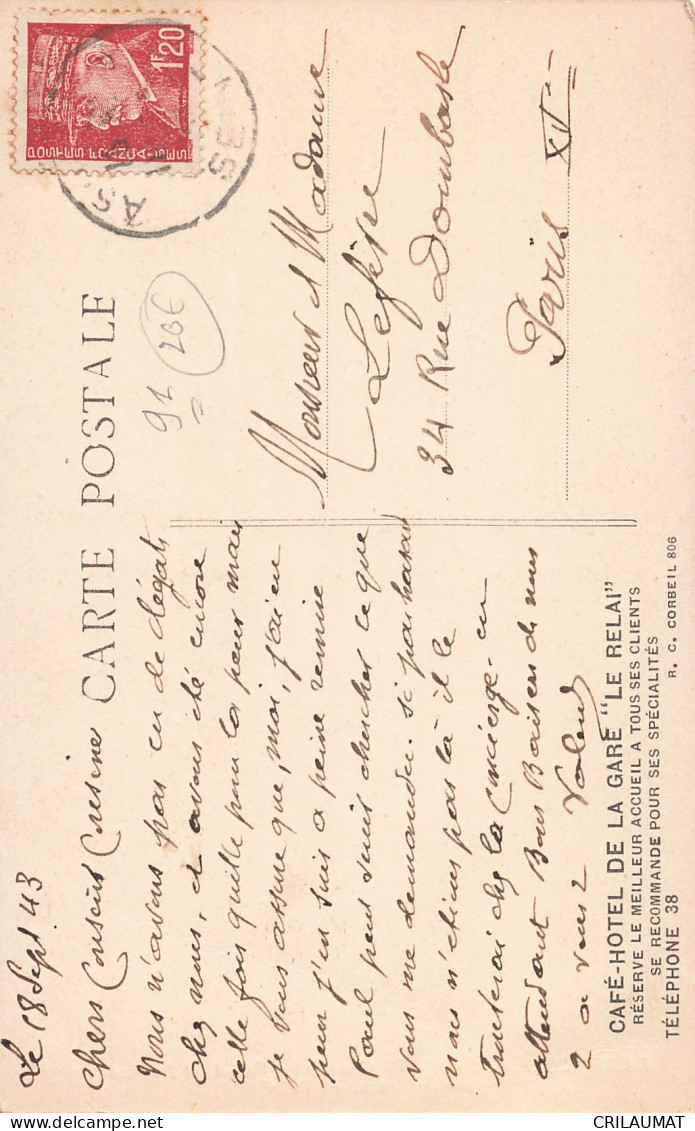 1F20
POSTES FRANÇAISES
CARTE POSTALE
91
20€
Le 18 Sept. 43
Chers Cousins Cousine
Nous n'avons pas eu de dégats
chez nous, et avons été encore
cette fois quitte pour la peur mais
je vous assure que, moi, j'ai eu
peur j'en suis a peine remise
Paul peut venir chercher ce que
vous me demandez. si par hasard
nous n'étions pas là il le
trouverai chez la concierge. en
attendant Bons Baisers de nous
2 a vous 2
Monsieur et Madame
34 Rue Dombasle
Paris XV
CAFÉ-HOTEL DE LA GARE "LE RELAI"
RÉSERVE LE MEILLEUR ACCUEIL A TOUS SES CLIENTS
SE RECOMMANDE POUR SES SPÉCIALITÉS
TÉLÉPHONE 38
R. C. CORBEIL 806
CRILAUMAT